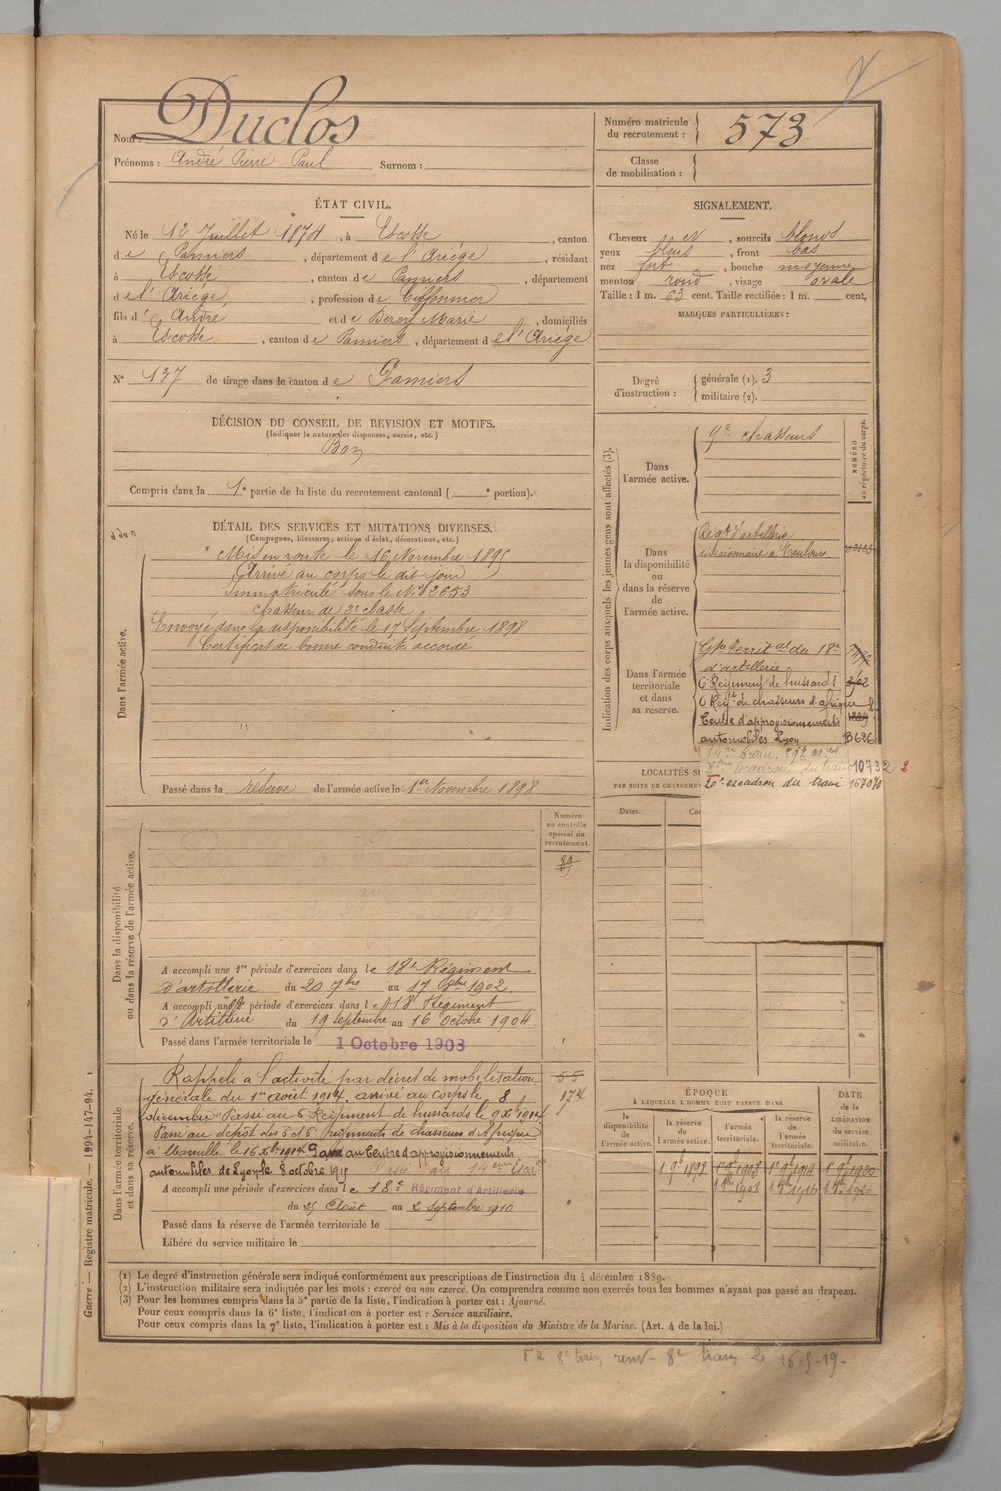 Nom : Duclos
Prénoms : André Pierre Paul Surnom :
Numéro matricule du recrutement : 573
Classe de mobilisation :
ÉTAT CIVIL.
Né le 12 Juillet 1874, à Escosse, canton
de Pamiers, département de l'Ariège, résidant
à Escosse, canton de Pamiers, département
de l'Ariège, profession de Chiffonnier
fils d' André et de Marie, domiciliés
à Escosse, canton de Pamiers, département de l'Ariège
N° 137 de tirage dans le canton de Pamiers
SIGNALEMENT.
Cheveux , sourcils blonds
yeux bleus, front bas
nez fort, bouche moyenne
menton rond, visage ovale
Taille : 1 m. 63 cent. Taille rectifiée : 1 m. cent.
MARQUES PARTICULIÈRES :
Degré d'instruction : générale (1). 3
militaire (2).
DÉCISION DU CONSEIL DE REVISION ET MOTIFS.
(Indiquer la nature des dispenses, sursis, etc.)
Bon
Compris dans la 1e partie de la liste du recrutement cantonal ( e portion).
DÉTAIL DES SERVICES ET MUTATIONS DIVERSES.
(Campagnes, blessures, actions d'éclat, décorations, etc.)
Dans l'armée active.
Mis en route le 16 Novembre 1895
Arrivé au corps le dit jour
Immatriculé sous le N° 2653
chasseur de 2e classe
Envoyé dans la disponibilité le 17 Septembre 1898
Certificat de bonne conduite accordé
Passé dans la réserve de l'armée active le 1er Novembre 1898
Indication des corps auxquels les jeunes gens sont affectés (3).
NUMÉRO au répertoire du corps.
Dans l'armée active.
9e chasseurs
Dans la disponibilité ou dans la réserve de l'armée active.
Régt d'artillerie
divisionnaire à Toulouse
Dans l'armée territoriale et dans sa réserve.
Gpe territ al du 18e
d'artillerie
6 Régiment de hussards
6 Regt de chasseurs d'afrique
Centre d'approvisionnements
automobiles Lyon B626
8ème escadron du train 10732 2
20e escadron du train 16707
LOCALITÉS
PAR SUITE DE CHANGEMEN
Dates.
Dans la disponibilité ou dans la réserve de l'armée active.
Numéro au contrôle spécial du recrutement.
A accompli une 1re période d'exercices dans le 18e Régiment
d'artillerie du 20 7bre au 17 8bre 1902.
A accompli une 2e période d'exercices dans le 18 Régiment
d'Artillerie du 19 septembre au 16 Octobre 1904
Passé dans l'armée territoriale le 1 Octobre 1908
Dans l'armée territoriale et dans sa réserve.
Rappelé à l'activité par décret de mobilisation 55
générale du 1er août 1914. arrivé au corps le 8 174
décembre Passé au 6 Régiment de hussards le 9 Xbre 1914
Passé au dépôt des 5 et 6 régiments de chasseurs d'Afrique
à Marseille le 16 Xbre 1914 Passé au Centre d'approvisionnements
automobiles de Lyon le 8 octobre 1915 Passé au 14eme Escon
A accompli une période d'exercices dans le 18e Régiment d'Artillerie
du 25 Août au 2 Septembre 1910
Passé dans la réserve de l'armée territoriale le
Libéré du service militaire le
ÉPOQUE
À LAQUELLE L'HOMME DOIT PASSER DANS
la disponibilité de l'armée active.
la réserve de l'armée active.
l'armée territoriale.
la réserve de l'armée territoriale.
DATE de la LIBÉRATION du service militaire.
(1) Le degré d'instruction générale sera indiqué conformément aux prescriptions de l'instruction du 4 décembre 1889.
(2) L'instruction militaire sera indiquée par les mots : exercé ou non exercé. On comprendra comme non exercés tous les hommes n'ayant pas passé au drapeau.
(3) Pour les hommes compris dans la 5e partie de la liste, l'indication à porter est : Ajourné.
Pour ceux compris dans la 6e liste, l'indication à porter est : Service auxiliaire.
Pour ceux compris dans la 7e liste, l'indication à porter est : Mis à la disposition du Ministre de la Marine. (Art. 4 de la loi.)
8e train renv. 8e train le 16-5-19-
Guerre — Registre matricule. — 1994-147-94.